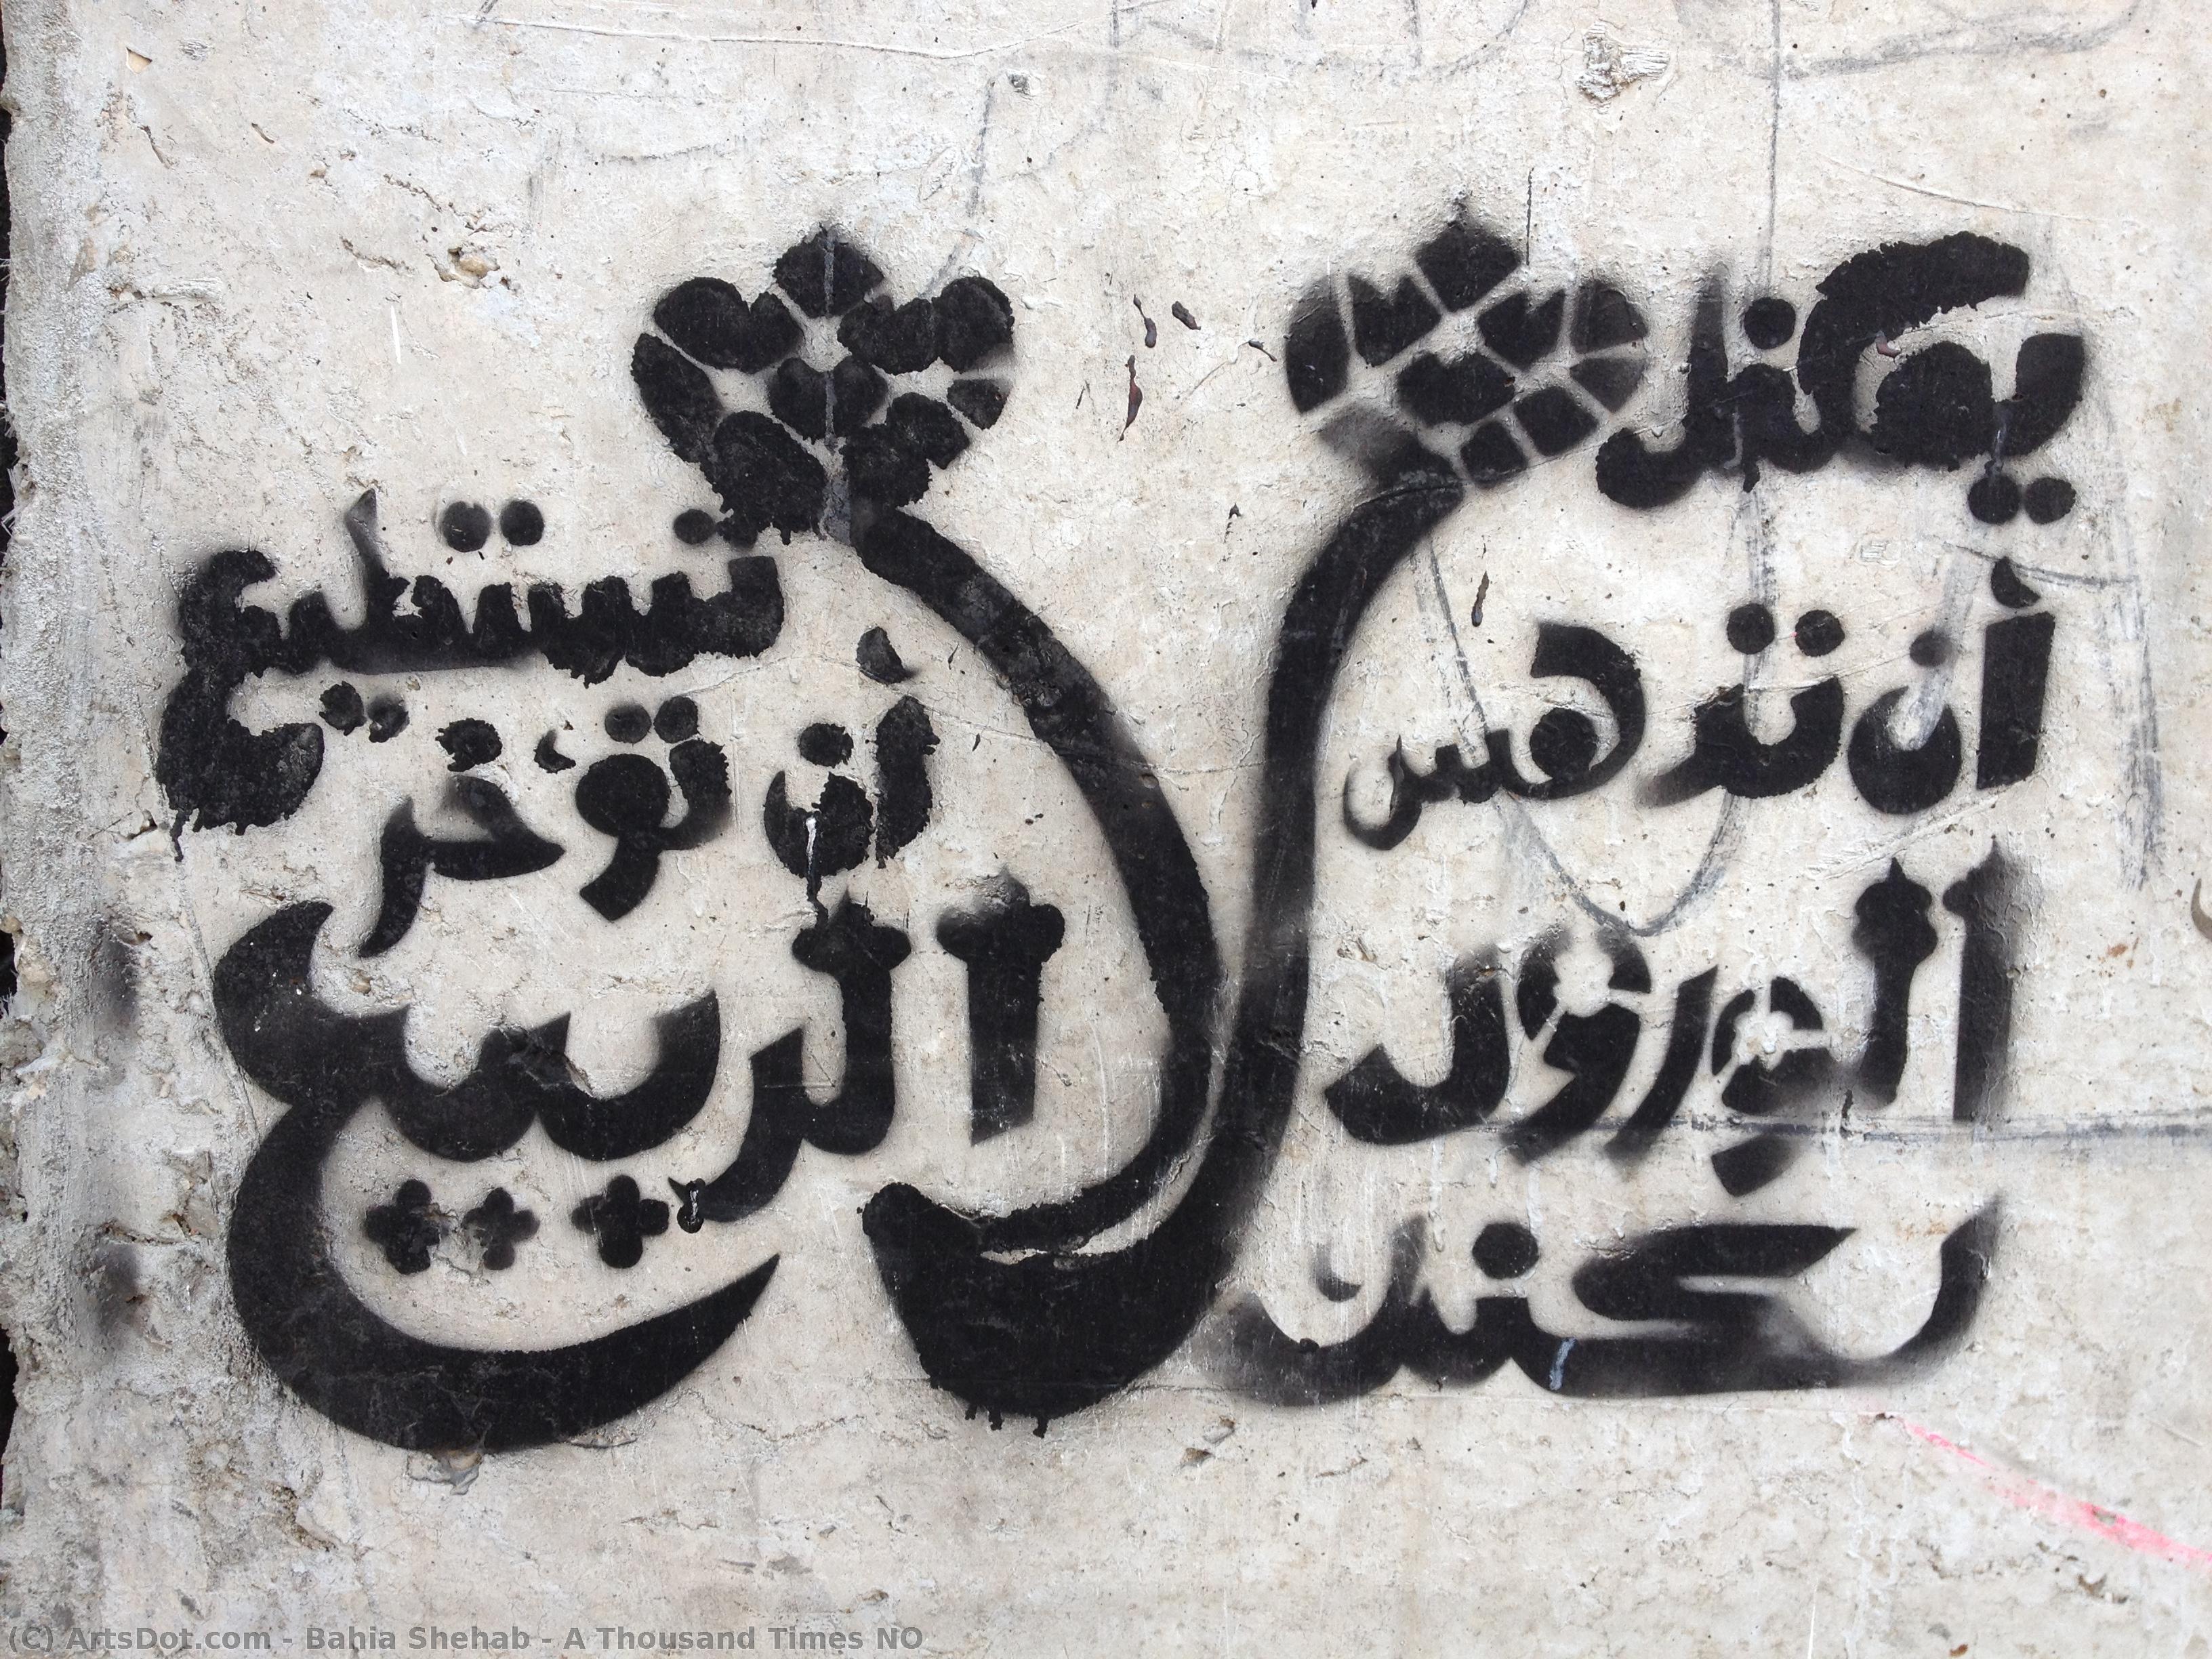 يمكنك
أن تدهس
الورود
لكنك
لا
تستطيع
أن تؤخر
الربيع
(C) ArtsDot.com - Bahia Shehab - A Thousand Times NO